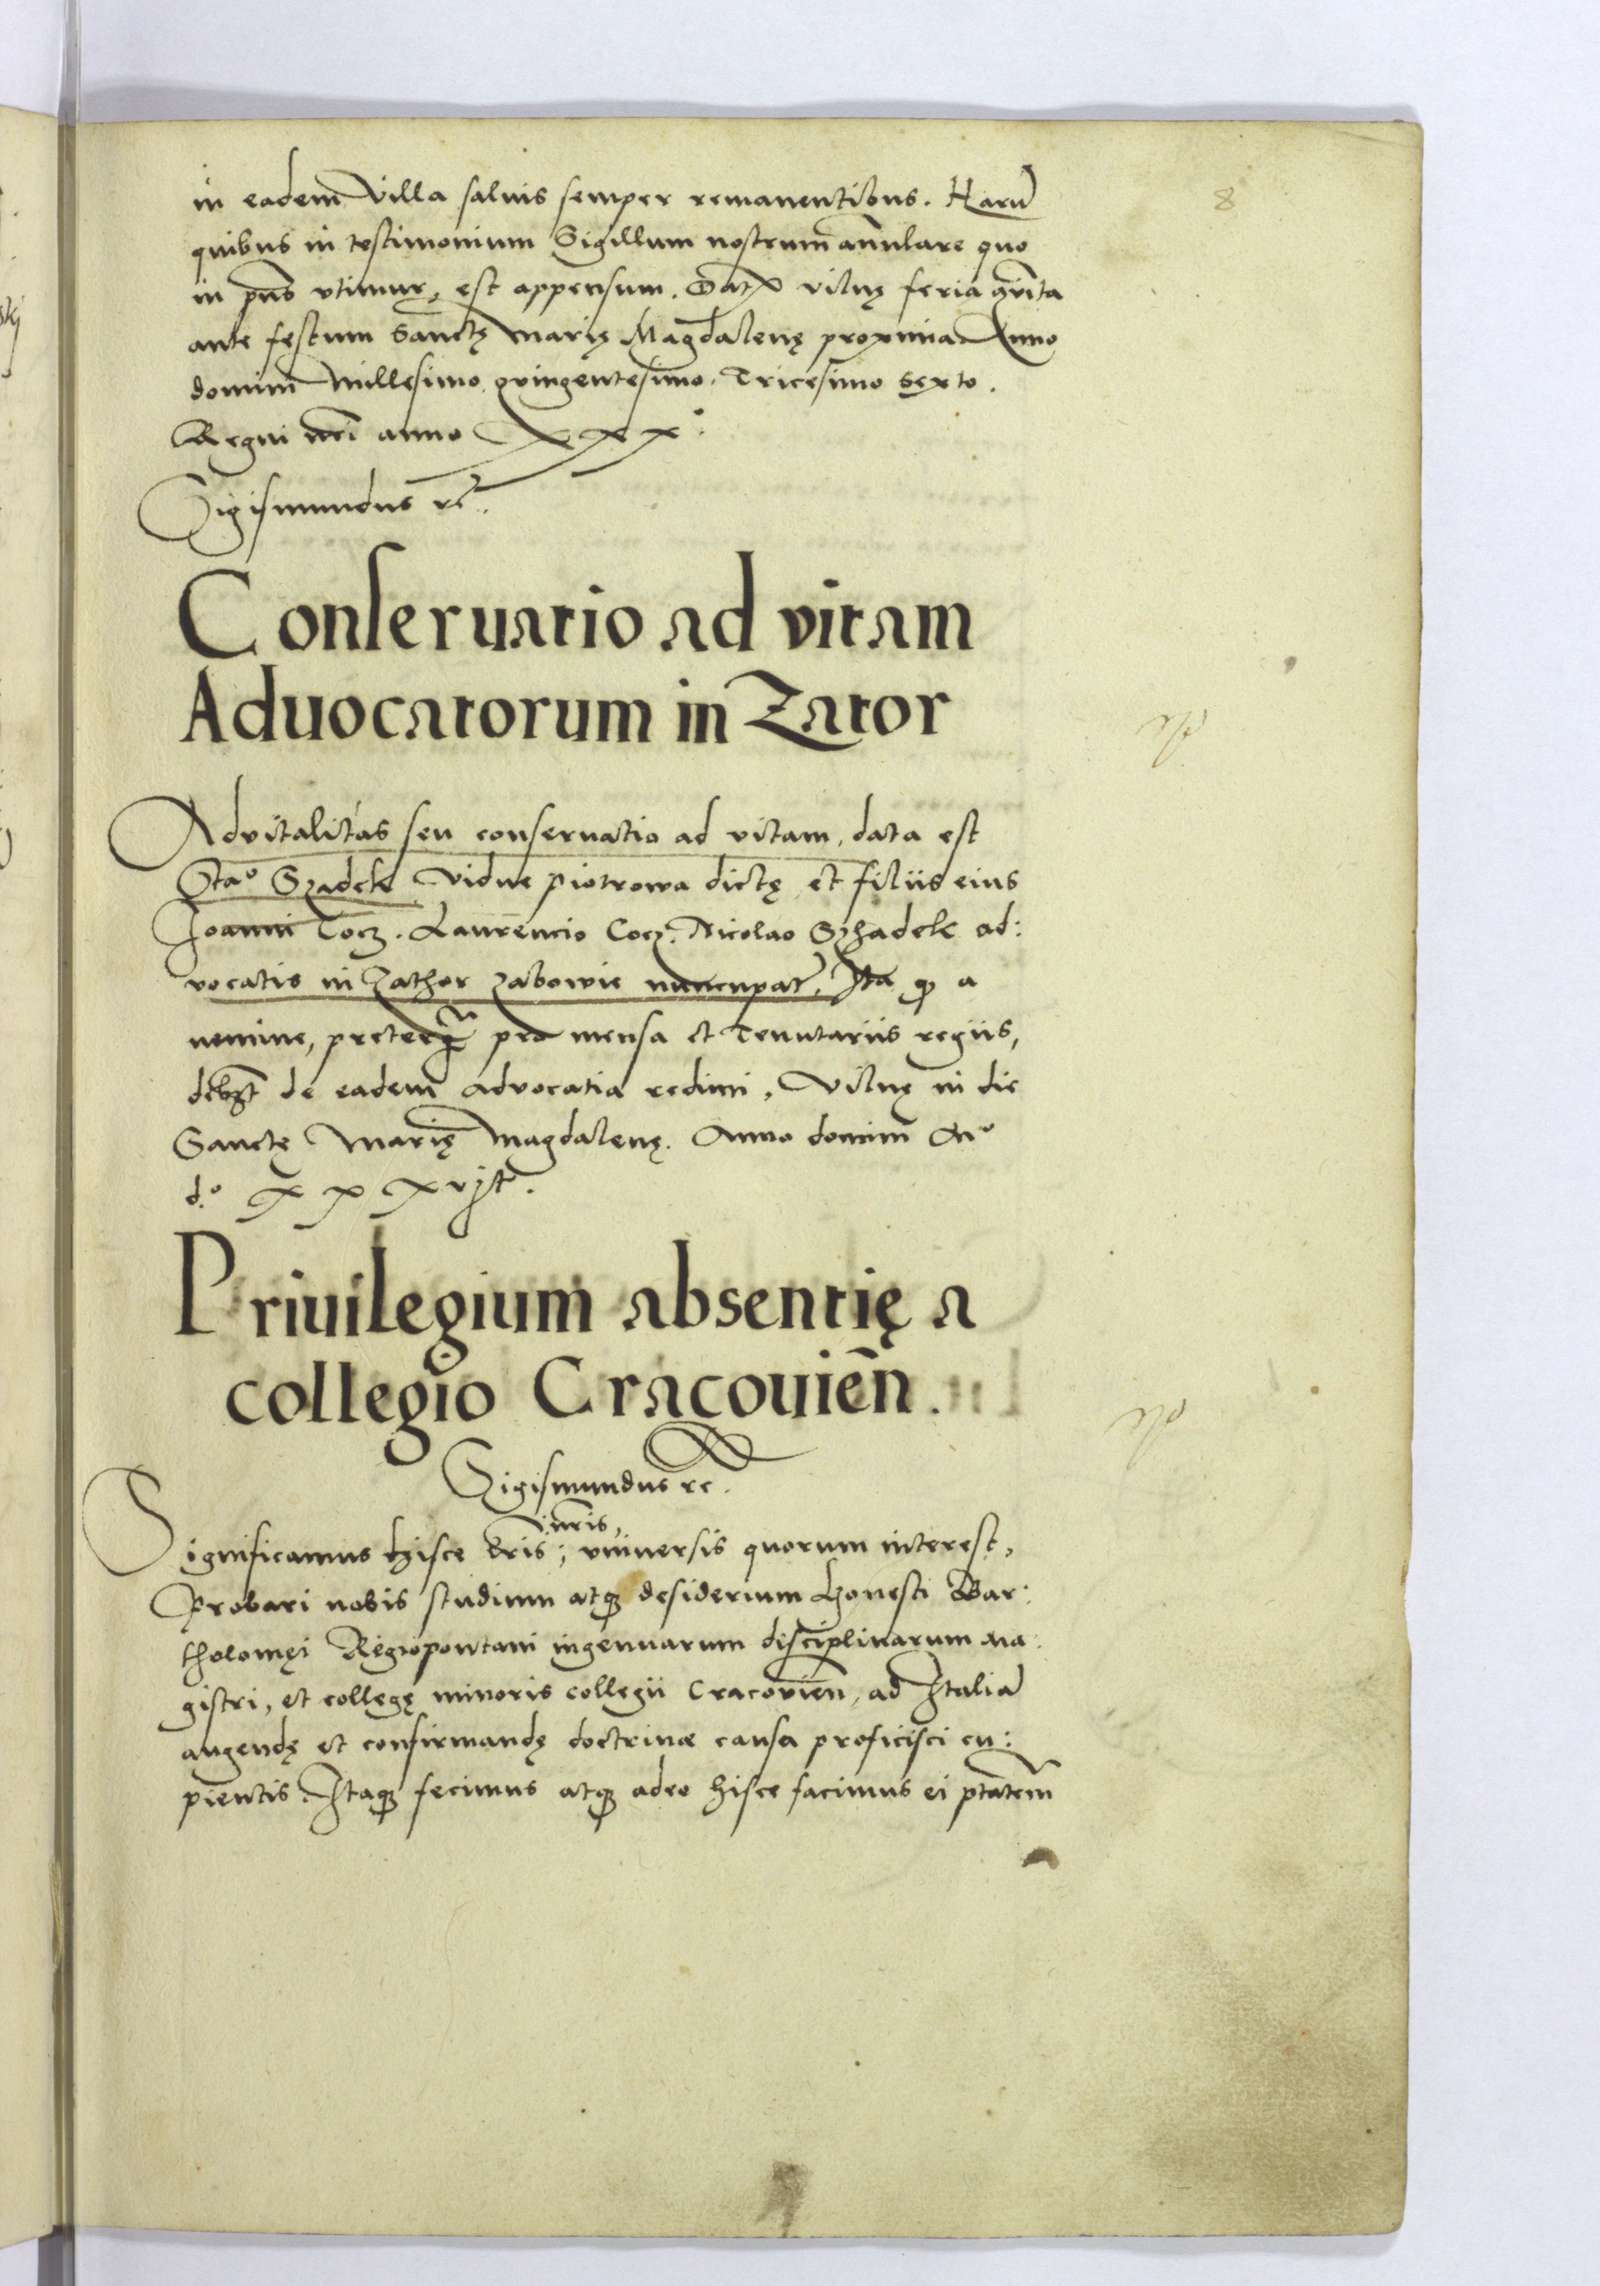 8
in eadem Villa saluis semper remanentibus. Harū
quibus in testimonium Sigillum nostrum annulare quo
in pn̄s vtimur, est appensum. Dat vilnę feria qvinta
ante festum Sanctę Marię Magdalenę proxima Anno
domini Millesimo qvingentesimo Tricesimo Sexto.
Regni nr̄i anno XXX°.
Sigismundus rē.
Conseruatio ad vitam
Aduocatorum in Zator
Advitalitas seu conseruatio ad vitam, data est
Sta° Szadek Vidue piotrowa dictę et filiis eius
Joanni Cocz. Laurencio Cocz. Nicolao Szhadek ad:
vocatis in Zathor Zabowie nuncupat, Ita qȝ a
nemine, preterqȝ pro mensa et Tenutariis regiis,
debȝt de eadem advocatia redimi, Vilnę in die
Sanctę Marię Magdalenę. Anno domini M°
d.° XXXvjto.
Priuilegium absentię a
collegio Cracouien̄.
Sigismundus rē.
nr̄is,
Significamus hisce lr̄is; vniversis quorum interest,
Probari nobis studium atqȝ desiderium honesti Bar:
tholomęi Regiopontani ingenuarum disciplinarum ma:
gistri, et collegę minoris collegii Cracovien̄, ad Italiā
augendę et confirmandę doctrinæ causa proficisci cu:
pientis. Itaqȝ fecimus atqȝ adeo hisce facimus ei ptatem